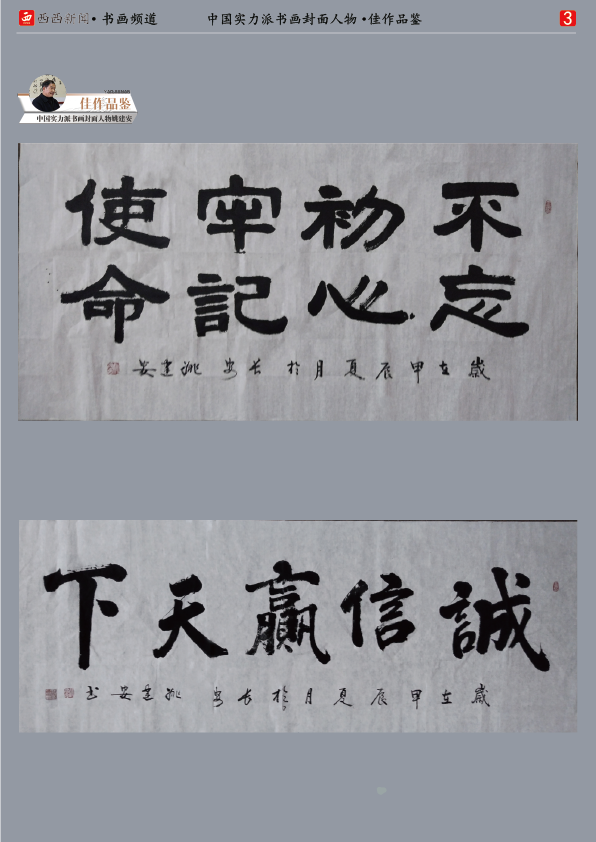 西西新闻•书画频道
中国实力派书画封面人物•佳作品鉴
3
佳作品鉴
中国实力派书画封面人物姚建安
不忘
初心
牢記
使命
歲在甲辰夏月於长安姚建安
誠信贏天下
歲在甲辰夏月於长安姚建安书